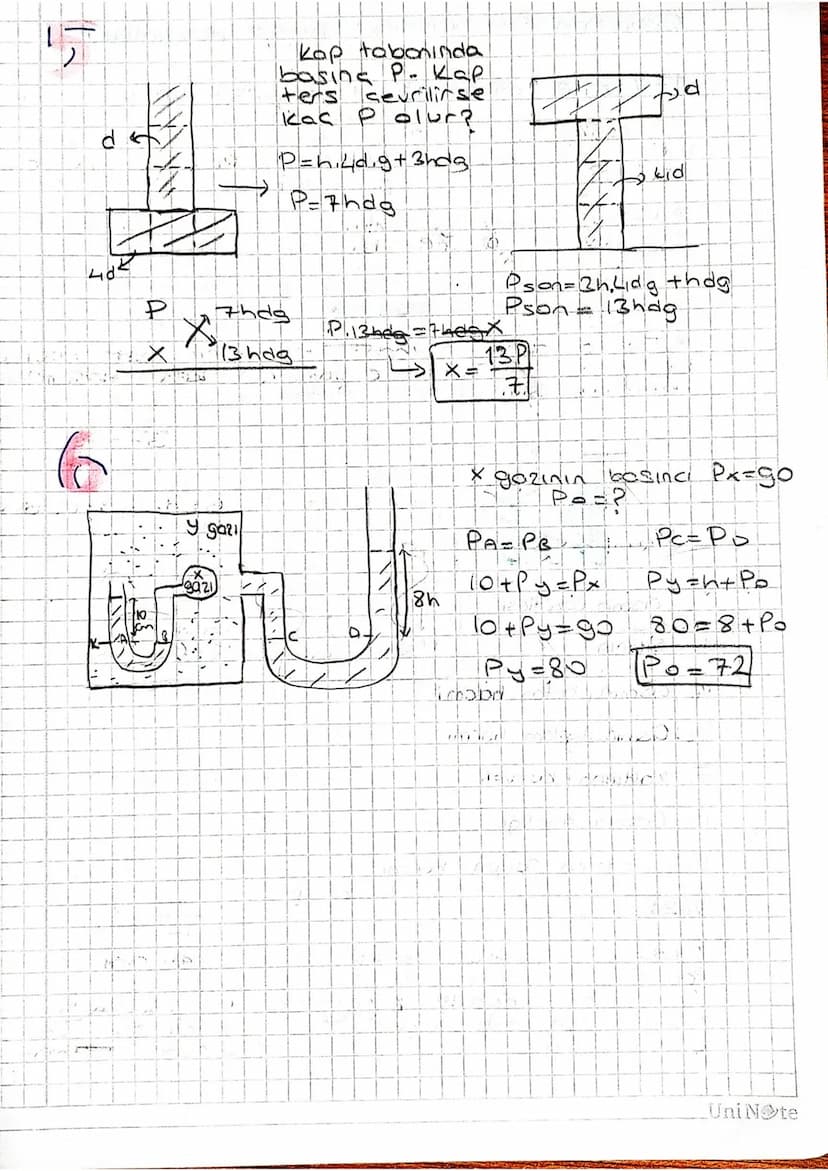 5)
Kap tabanında
basınç P. Kap
ters çevrilirse
kaç P olur?
d
P=h.4d.g+3hdg
P=7hdg
4d
d
4d
Pson=3h.4dg+hdg
Pson=13hdg
P 7hdg
X 13hdg
P.13hdg=7hdgX
x=13P/7
6
x gazının basıncı Px=90
Po=?
y gazı
x
gazı
10
cm
K
A
B
C
D
8h
PA=PB
10+Py=Px
10+Py=90
Py=80
Pc=PD
Py=h+Po
80=8+Po
Po=72
UniNote